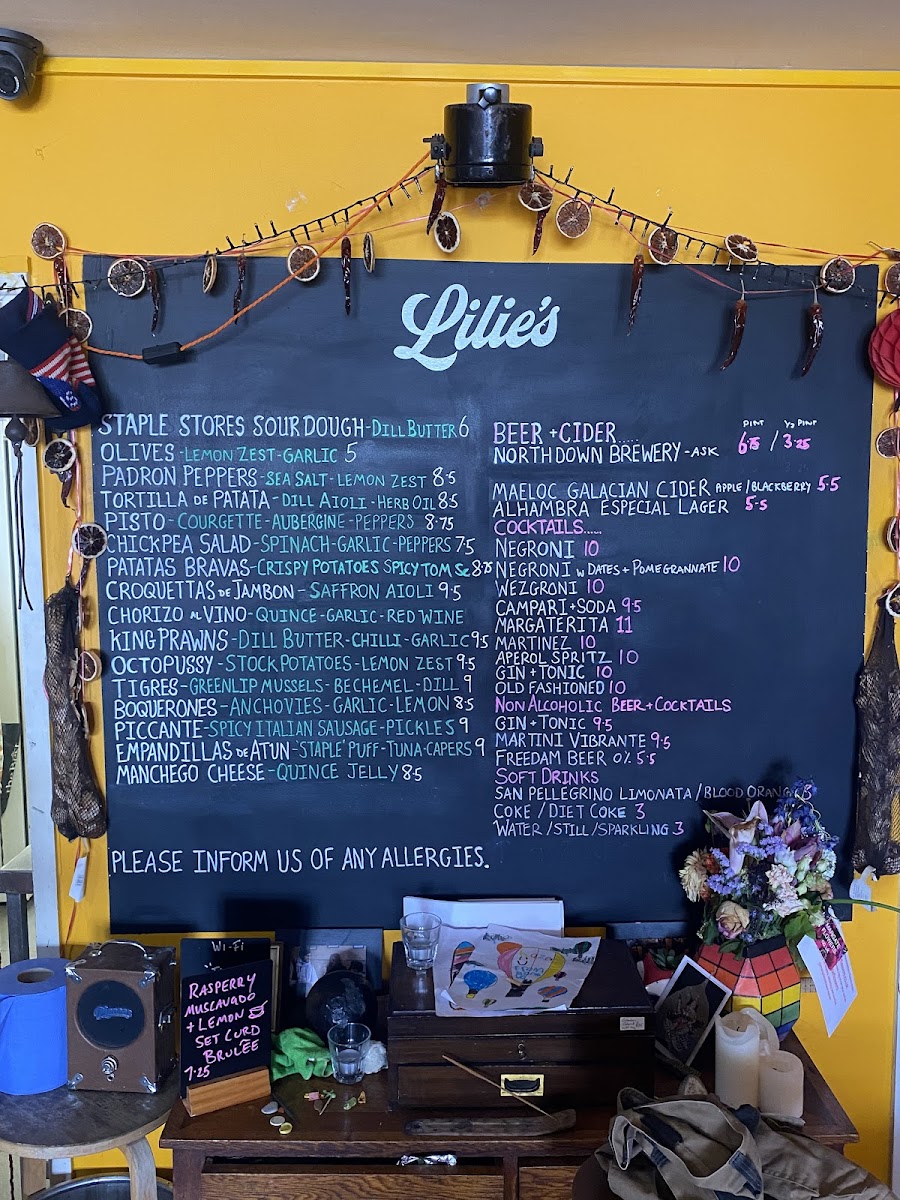 Lilie's
STAPLE STORES SOURDOUGH-DILL BUTTER 6
OLIVES-LEMON ZEST-GARLIC 5
PADRON PEPPERS-SEA SALT-LEMON ZEST 8.5
TORTILLA DE PATATA-DILL AIOLI-HERB OIL 8.5
PISTO-COURGETTE-AUBERGINE-PEPPERS 8.75
CHICKPEA SALAD-SPINACH-GARLIC-PEPPERS 7.5
PATATAS BRAVAS-CRISPY POTATOES SPICY TOM Sc 8.75
CROQUETTAS DE JAMBON-SAFFRON AIOLI 9.5
CHORIZO AL VINO-QUINCE-GARLIC-RED WINE
KING PRAWNS-DILL BUTTER-CHILLI-GARLIC 9.5
OCTOPUSSY-STOCK POTATOES-LEMON ZEST 9.5
TIGRES-GREENLIP MUSSELS-BECHEMEL-DILL 9
BOQUERONES-ANCHOVIES-GARLIC-LEMON 8.5
PICCANTE-SPICY ITALIAN SAUSAGE-PICKLES 9
EMPANDILLAS DE ATUN-'STAPLE' PUFF-TUNA-CAPERS 9
MANCHEGO CHEESE-QUINCE JELLY 8.5
PLEASE INFORM US OF ANY ALLERGIES.
PINT ½ PINT
BEER+CIDER..... 6.75 / 3.25
NORTHDOWN BREWERY-ASK
MAELOC GALACIAN CIDER APPLE/BLACKBERRY 5.5
ALHAMBRA ESPECIAL LAGER 5.5
COCKTAILS......
NEGRONI 10
NEGRONI W DATES+POMEGRANNATE 10
WEZGRONI 10
CAMPARI+SODA 9.5
MARGATERITA 11
MARTINEZ 10
APEROL SPRITZ 10
GIN+TONIC 10
OLD FASHIONED 10
NON ALCOHOLIC BEER+COCKTAILS
GIN+TONIC 9.5
MARTINI VIBRANTE 9.5
FREEDAM BEER 0% 5.5
SOFT DRINKS
SAN PELLEGRINO LIMONATA/BLOOD ORANGE 3
COKE/DIET COKE 3
WATER/STILL/SPARKLING 3
WI-FI
RASPERRY
MUSCAVADO
+ LEMON
SET CURD
BRULÉE
7.25